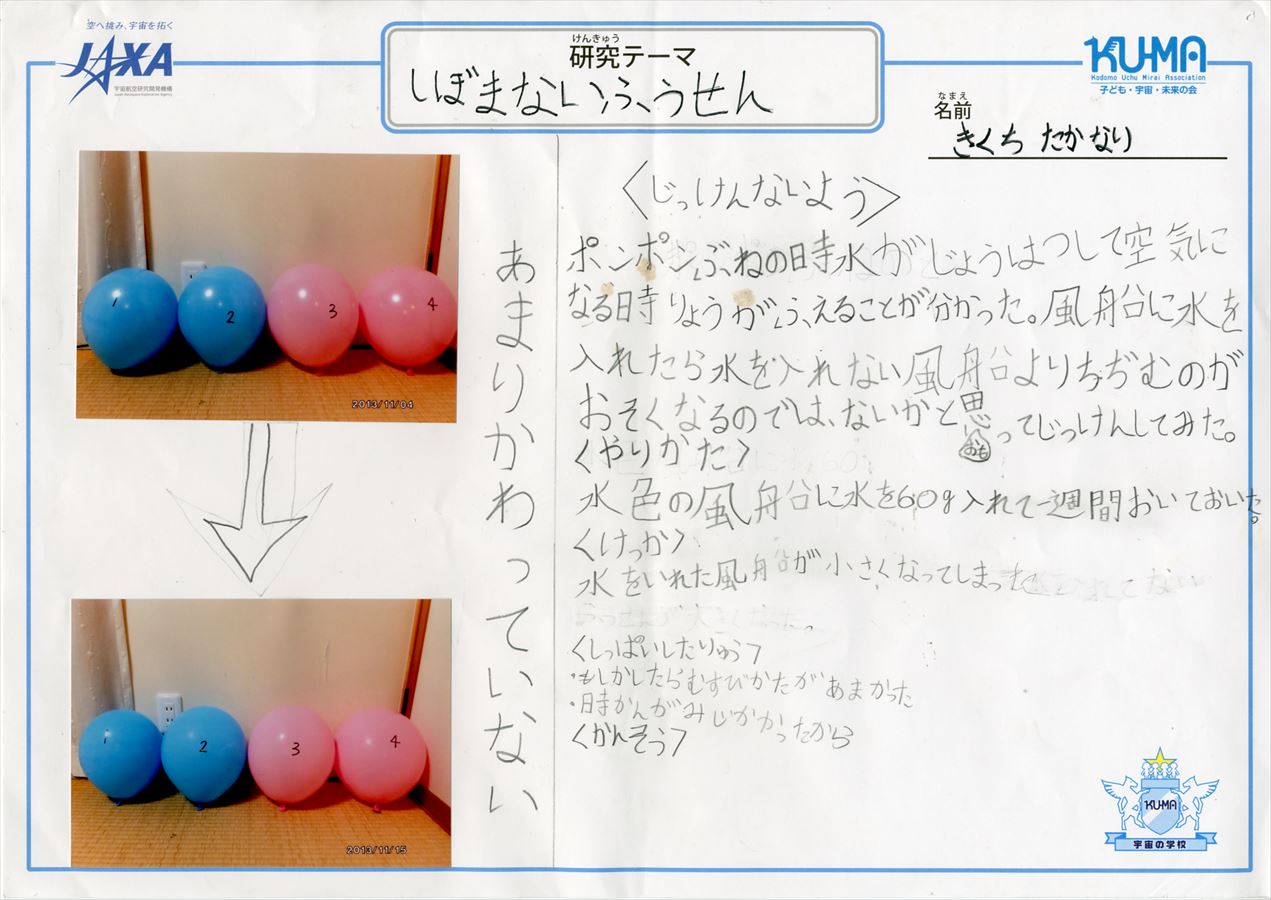 空へ挑み、宇宙を拓く
JAXA
宇宙航空研究開発機構
Japan Aerospace Exploration Agency
けんきゅう
研究テーマ
しぼまないふうせん
KU-MA
Kodomo Uchu Mirai Association
子ども・宇宙・未来の会
なまえ
名前
きくち たかなり
1
2
3
4
2013/11/04
1
2
3
4
2013/11/15
あまりかわっていない
〈じっけんないよう〉
ポンポンぶねの時水がじょうはつして空気に
なる時りょうがふえることが分かった。風船に水を
入れたら水を入れない風船よりちぢむのが
おそくなるのでは、ないかと思ってじっけんしてみた。
おも
〈やりかた〉
水色の風船に水を60g入れて一週間おいておいた。
〈けっか〉
水をいれた風船が小さくなってしまった
〈しっぱいしたりゅう〉
・もしかしたらむすびかたがあまかった
・時かんがみじかかったから
〈かんそう〉
KU-MA
宇宙の学校